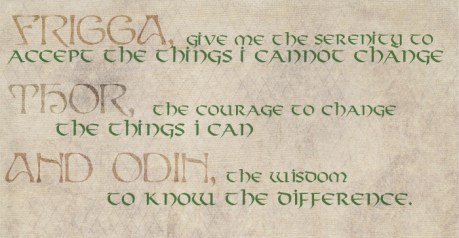 FRIGGA, GIVE ME THE SERENITY TO
ACCEPT THE THINGS I CANNOT CHANGE
THOR, THE COURAGE TO CHANGE
THE THINGS I CAN
AND ODIN, THE WISDOM
TO KNOW THE DIFFERENCE.